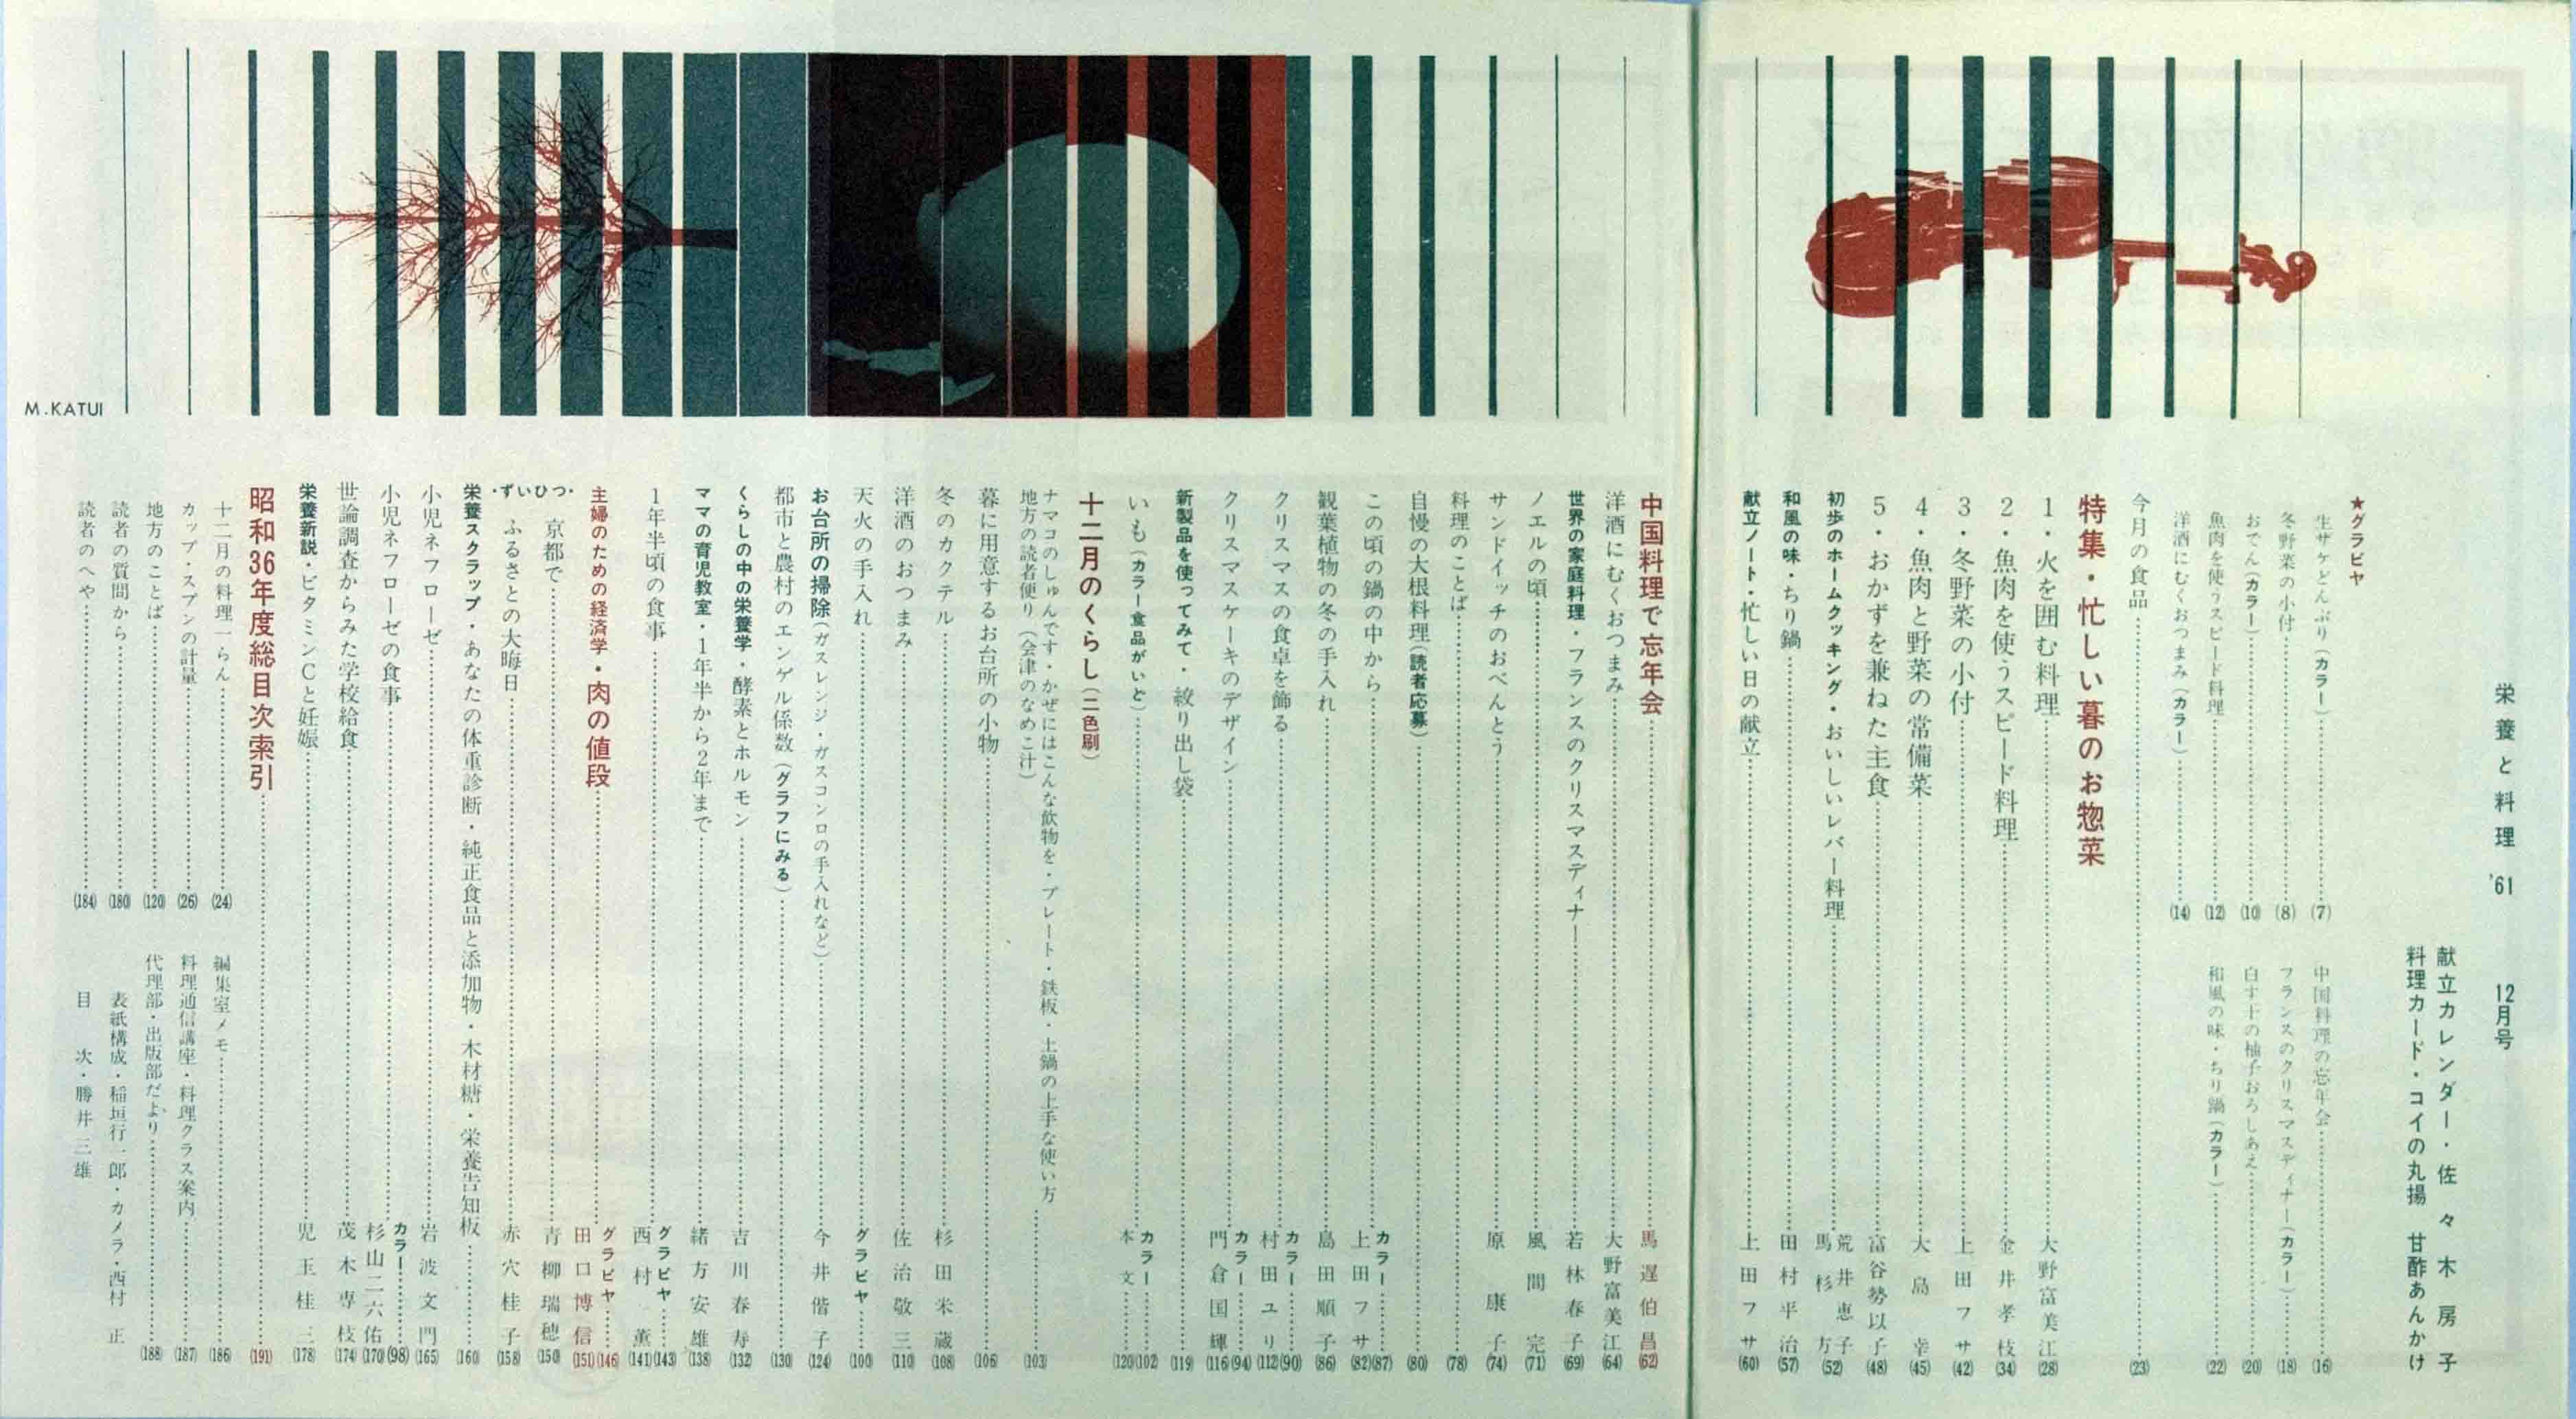 栄養と料理 '61 12月号
献立カレンダー・佐々木房子
料理カード・コイの丸揚 甘酢あんかけ
★グラビヤ
生ザケどんぶり(カラー)……(7)
冬野菜の小付……(8)
おでん(カラー)……(10)
魚肉を使うスピード料理……(12)
洋酒にむくおつまみ(カラー)……(14)
中国料理の忘年会……(16)
フランスのクリスマスディナー(カラー)……(18)
白す干の柚子おろしあえ……(20)
和風の味・ちり鍋(カラー)……(22)
今月の食品……(23)
特集・忙しい暮のお惣菜
1・火を囲む料理……大野富美江(28)
2・魚肉を使うスピード料理……金井孝枝(34)
3・冬野菜の小付……上田フサ(42)
4・魚肉と野菜の常備菜……大島幸(45)
5・おかずを兼ねた主食……富谷勢以子(48)
初歩のホームクッキング・おいしいレバー料理……荒井恵子 馬杉方(52)
和風の味・ちり鍋……田村平治(57)
献立ノート・忙しい日の献立……上田フサ(60)
中国料理で忘年会……馬遅伯昌(62)
洋酒にむくおつまみ……大野富美江(64)
世界の家庭料理・フランスのクリスマスディナー……若林春子(69)
ノエルの頃……風間完(71)
サンドイッチのおべんとう……原康子(74)
料理のことば……(78)
自慢の大根料理(読者応募)……(80)
この頃の鍋の中から……カラー……(87) 上田フサ(82)
観葉植物の冬の手入れ……島田順子(86)
クリスマスの食卓を飾る……カラー……(90) 村田ユリ(112)
クリスマスケーキのデザイン……カラー……(94) 門倉国輝(116)
新製品を使ってみて・絞り出し袋……(119)
いも(カラー食品がいど)……カラー……(102) 本文……(120)
十二月のくらし(二色刷)
ナマコのしゅんです・かぜにはこんな飲物を・プレート・鉄板・土鍋の上手な使い方
地方の読者便り(会津のなめこ汁)……(103)
暮に用意するお台所の小物……(106)
冬のカクテル……杉田米蔵(108)
洋酒のおつまみ……佐治敬三(110)
天火の手入れ……グラビヤ……(100)
お台所の掃除(ガスレンジ・ガスコンロの手入れなど)……今井偕子(124)
都市と農村のエンゲル係数(グラフにみる)……(130)
くらしの中の栄養学・酵素とホルモン……吉川春寿(132)
ママの育児教室・1年半から2年まで……緒方安雄(138)
1年半頃の食事……グラビヤ……(143) 西村薫(141)
主婦のための経済学・肉の値段……グラビヤ……(146) 田口博信(151)
・ずいひつ・
京都で……青柳瑞穂(150)
ふるさとの大晦日……赤穴桂子(158)
栄養スクラップ・あなたの体重診断・純正食品と添加物・木材糖・栄養告知板……(160)
小児ネフローゼ……岩波文門(165)
小児ネフローゼの食事……カラー……(98) 杉山二六佑(170)
世論調査からみた学校給食……茂木専枝(174)
栄養新説・ビタミンCと妊娠……児玉桂三(178)
昭和36年度総目次索引……(191)
十二月の料理一らん……(24)
カップ・スプンの計量……(26)
地方のことば……(120)
読者の質問から……(180)
読者のへや……(184)
編集室メモ……(186)
料理通信講座・料理クラス案内……(187)
代理部・出版部だより……(188)
表紙構成・稲垣行一郎・カメラ・西村正
目次・勝井三雄
M.KATUI